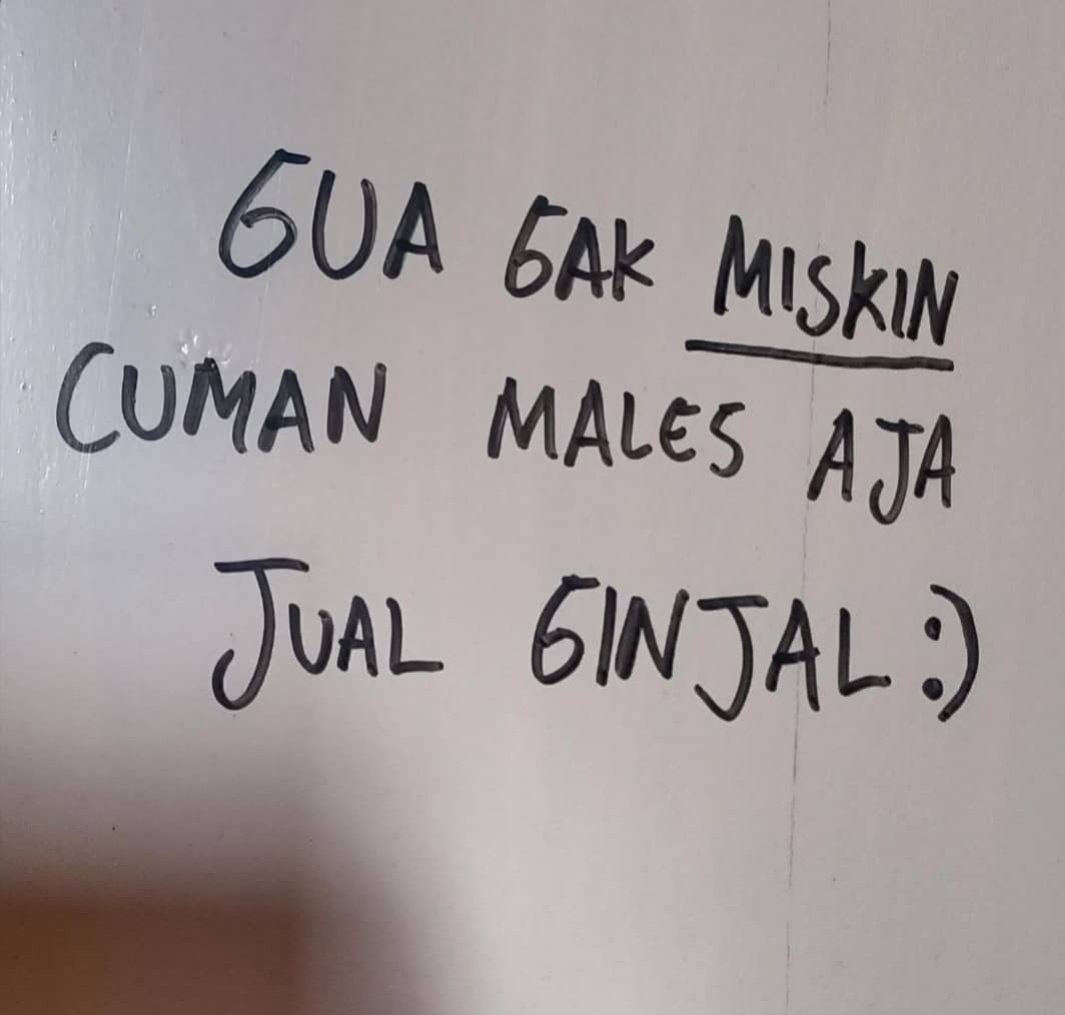 GUA GAK MISKIN
CUMAN MALES AJA
JUAL GINJAL :)